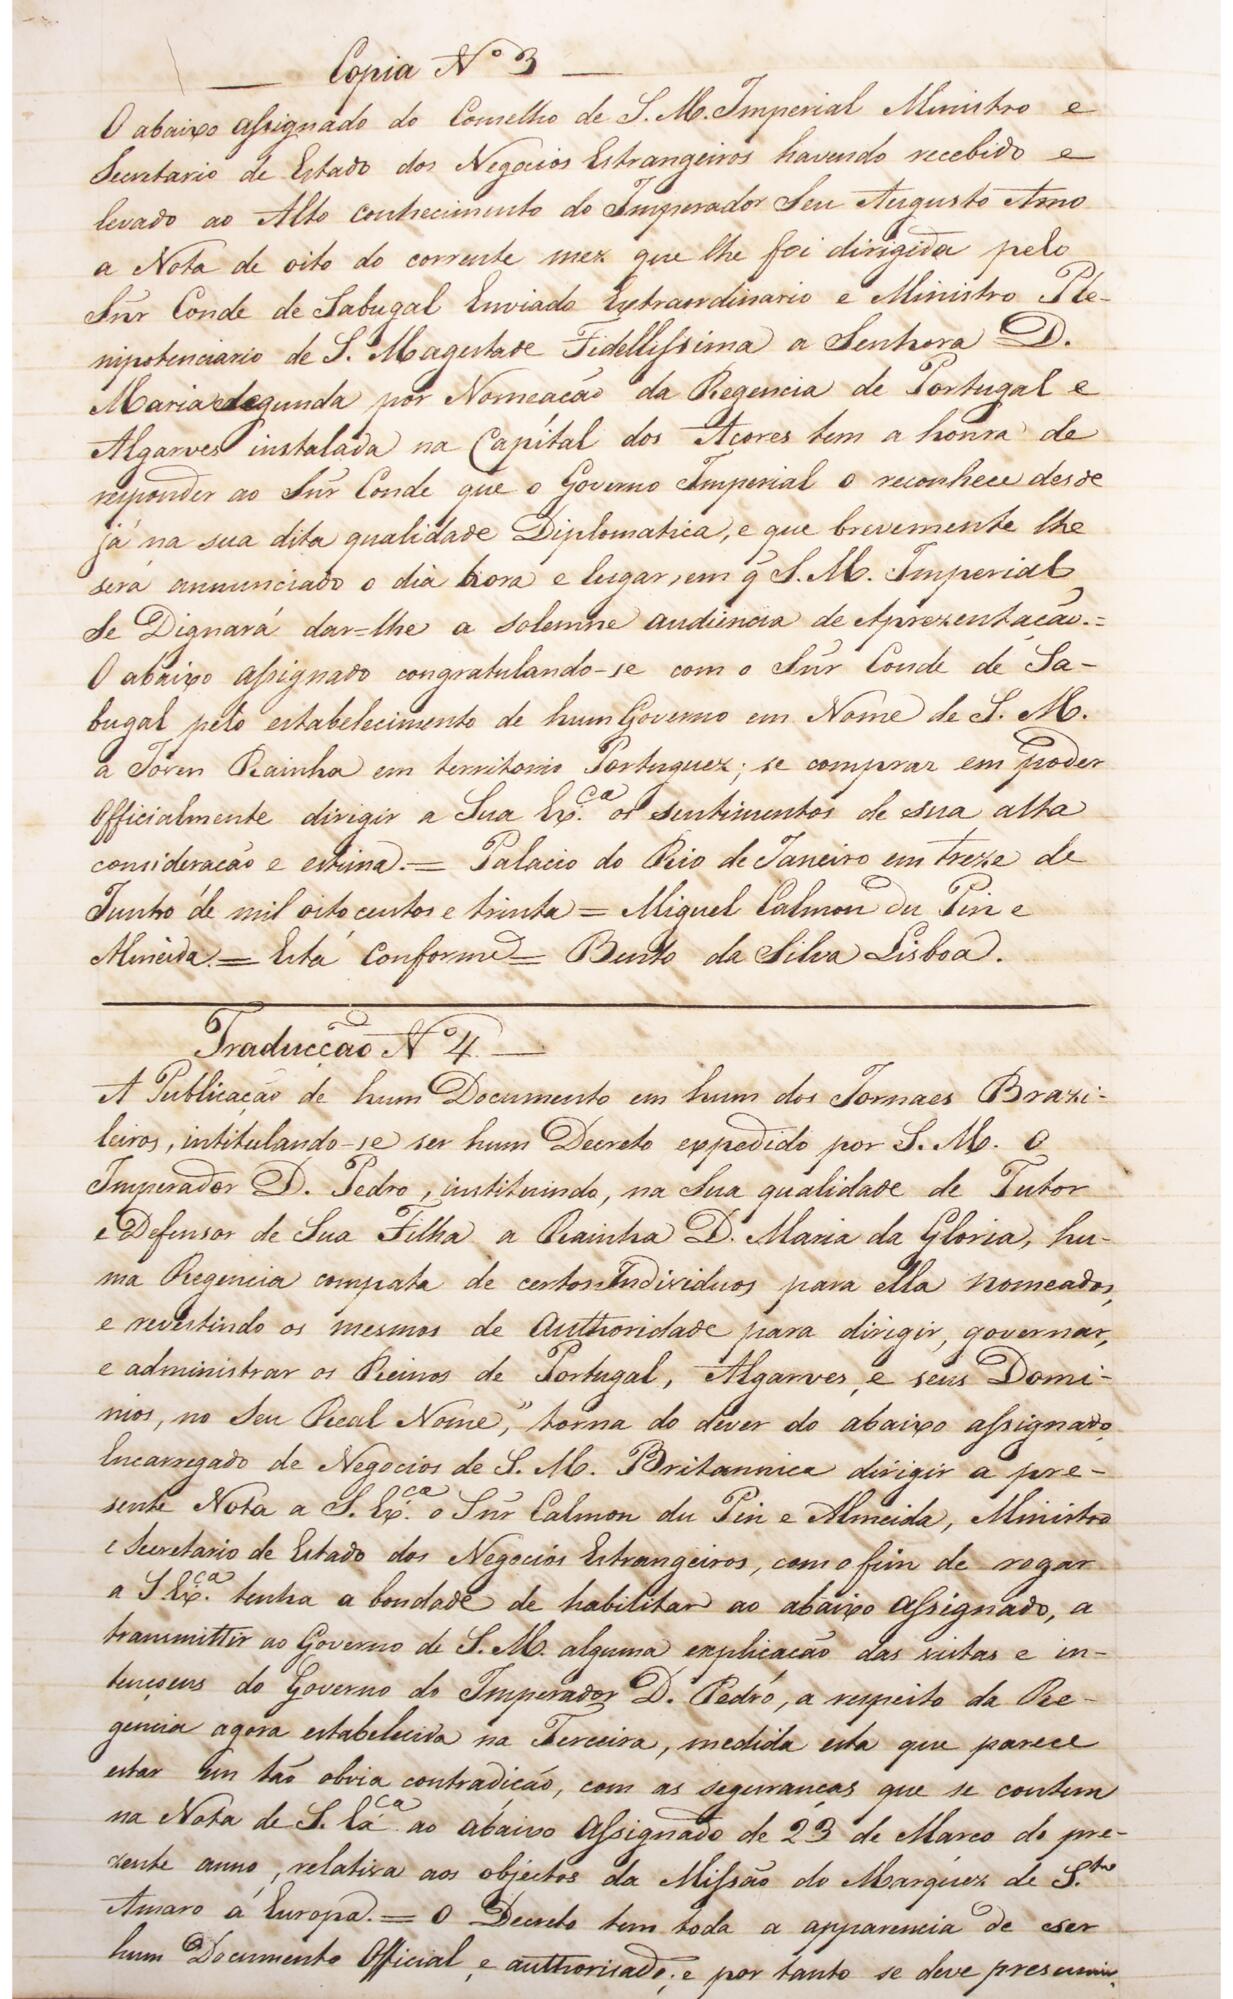 Copia Nº 3
O abaixo assignado do Conselho de S. M. Imperial Ministro e
Secretario de Estado dos Negocios Estrangeiros havendo recebido e
levado ao Alto conhecimento do Imperador Seu Augusto Amo
a Nota de oito do corrente mez que lhe foi dirigida pelo
Snr Conde de Sabugal Enviado Extraordinario e Ministro Ple-
nipotenciario de S. Magestade Fidellissima a Senhora D.
Maria segunda por Nomeação da Regencia de Portugal e
Algarves instalada na Capital dos Açores tem a honra de
responder ao Snr Conde que o Governo Imperial o reconhece desde
já na sua dita qualidade Diplomatica, e que brevemente lhe
será annunciado o dia hora e lugar, em q̃ S. M. Imperial
Se Dignará dar=lhe a solemne audiencia de Aprezentação.=
O abaixo assignado congratulando-se com o Snr Conde de Sa-
bugal pelo estabelecimento de hum Governo em Nome de S. M.
a Joven Rainha em territorio Portuguez; se compraz em poder
Officialmente dirigir a Sua Ex.ca os sentimentos de sua alta
consideração e estima.= Palacio do Rio de Janeiro em treze de
Junho de mil oito centos e trinta = Miguel Calmon du Pin e
Almeida.= Está Conforme= Bento da Silva Lisboa.
Traducção Nº 4.
A Publicação de hum Documento em hum dos Jornaes Brazi-
leiros, intitulando-se ser hum Decreto expedido por S. M. O
Imperador D. Pedro, instituindo, na Sua qualidade de Tutor
e Defensor de Sua Filha a Rainha D. Maria da Gloria, hu-
ma Regencia compata de certos Individuos para ella nomeados,
e revestindo os mesmos de authoridade para dirigir, governar,
e administrar os Reinos de Portugal, Algarves, e seus Domi-
nios, no Seu Real Nome," torna do dever do abaixo assignado,
Encarregado de Negocios de S. M. Britannica dirigir a pre-
sente Nota a S. Ex.ca o Snr Calmon du Pin e Almeida, Ministro
e Secretario de Estado dos Negocios Estrangeiros, com o fim de rogar
a S. Ex.ca tenha a bondade de habilitar ao abaixo assignado, a
transmittir ao Governo de S. M. alguma explicacão das vistas e in-
tençoens do Governo do Imperador D. Pedro, a respeito da Re-
gencia agora estabelecida na Terceira, medida esta que parece
estar em tão obvia contradicão, com as seguranças que se contem
na Nota de S. Exa ca ao abaixo assignado de 23 de Marco do pre-
zente anno, relativa aos objectos da Missão do Marquez de S.to
Amaro á Europa.= O Decreto tem toda a apparencia de ser
hum Documento Official, e authorisado; e por tanto se deve presumir,